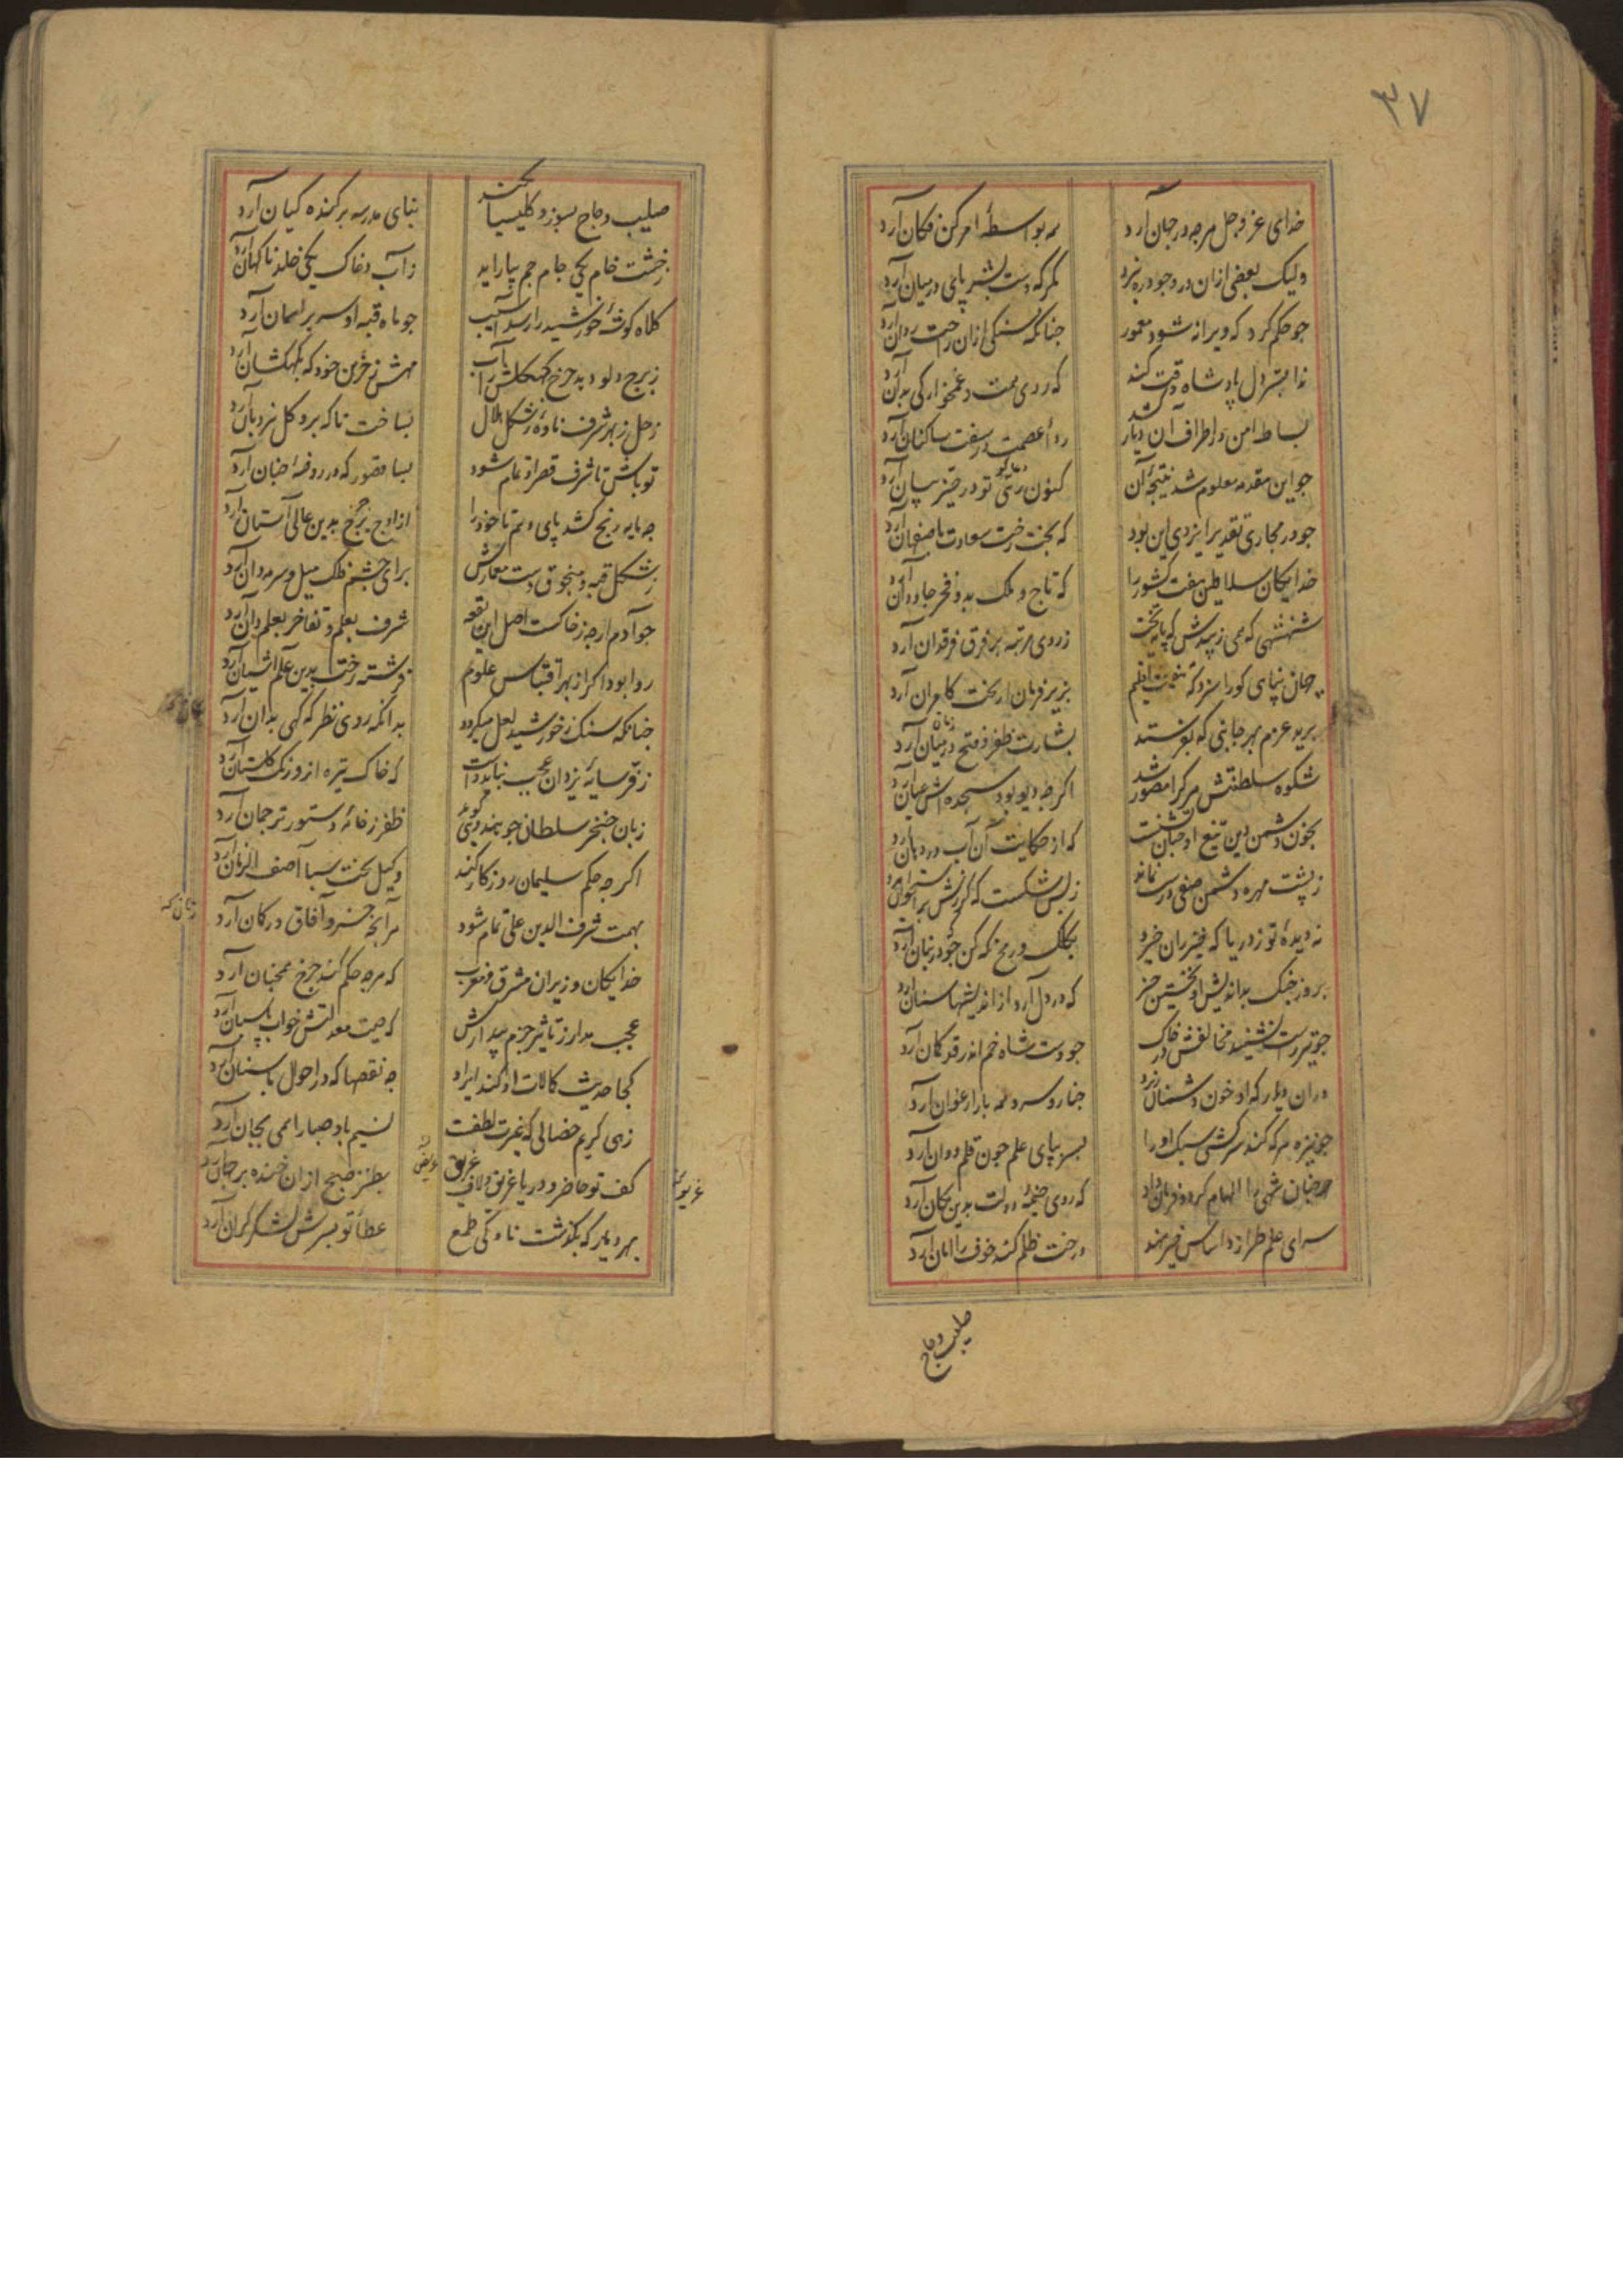 ۳۷
خدای عز و جل هرچه در جهان آرد همه بواسطهٔ امر کن فکان آرد
ولیک بعضی ازان در وجود ره نبرد مگر که دست بشر پای در میان آرد
جو حکم کرد که ویرانهٔ شود معمور جنانکه سنکی ازان راحت روان آرد
ندا بسر دل پادشاه وقت کند که روی همت و غمخوارکی بدان آرد
بساط امن در اطراف آن دیار کشد ردا عصمت در سفت ساکنان آرد
جو این مقدمه معلوم شد نتیجهٔ آن کنون رهی تو در حیز بیان آرد
جو در مجاری تقدیر ایزدی این بود که بخت رخت سعادت باصفهان آرد
خدایکان سلاطین هفت کشور را که تاج و ملک بدو فخر جاودان آرد
شهنشهی که همی زیبدش که پایهٔ تخت ز روی مرتبه بر فرق فرقدان آرد
جهان پناهی کورا سزد که هفت اقلیم بزیر فرمان از بخت کامران آرد
برید عزم بهر جانبی که بفرستد بشارت ظفر و فتح در میان آرد
زمان
شکوه سلطنتش هر کرا مصور شد اکرچه دیو بود سجده اش عیان آرد
بخون دشمن دین تیغ او جنان تشنست که از حکایت آن آب در دهان آرد
ز پشت مهره دشمن صفی درست نماند ز بس شکست که کرزش بر استخوان آرد
نه دیدهٔ تو ز دریا که خیزران خیزد
بروز جنک بداندیش او نخستین جز که در دل آرد از اندیشها سنان آرد
جو تیر راست نشیند مخالفش در خاک جو دست شاه خم اندر قد کمان آرد
دران دیار که او خون دشمنان ریزد جنار و سرو همه بار ارغوان آرد
جو نیزه هر که کند سرکشی سبک او را بسر بپای علم جون قلم دوان آرد
جنان شهی را الهام کرد و فرمان داد که روی خیمهٔ دولت بدین مکان آرد
سرای علم طرازد اساس خیر نهد درخت ظلم کند خوف را امان آرد
صلیب و عاج
صلیب و عاج بسوزد کلیسیا بکند بنای مدرسه بر کندهٔ کیان آرد
ز خشت خام یکی جام جم بیاراید ز آب و خاک یکی خلد ناکهان آرد
کلاه کوشهٔ خورشید را رسد آسیب جو ماه قبهٔ او سر بر آسمان آرد
ز برج دلو دهد جرخ کهکلش را آب مهش ز خرمن خود که بکهکشان آرد
زحل ز بهر شرف ناوهٔ ز شکل هلال بساخت تا که برو کل نردبان آرد
تو باش تا شرف قصر او تمام شود بسا قصور که در روضهٔ جنان آرد
جه مایه رنج کشد پای وهم تا خود را از اوج جرخ بدین عالی آستان آرد
ز شکل قبه و منجوق دست معمارش برای جشم فلک میل و سرمه دان آرد
جو آدم ارجه ز خاکست اصل این بقعه شرف بعلم و تفاخر بعلم دان آرد
روا بود اکر از بهر اقتباس علوم فرشته رخت بدین عالم آشیان آرد
جنانکه سنک ز خورشید لعل میکردد بدانکه روی نظر که کهی بدان آرد
ز فر سایهٔ یزدان عجب نباید داشت که خاک تیره ازو رنک کلستان آرد
زبان خنجر سلطان جو هندوی کوید ظفر ز خامهٔ دستور ترجمان آرد
اکرجه حکم سلیمان روزکار کند وکیل تخت سبا آصف الزمان آرد
بهمت شرف الدین علی تمام شود هر آنجه خسرو آفاق در کمان آرد
خدایکان وزیران مشرق و مغرب که هرجه حکم کند جرخ همجنان آرد
عجب مدار ز تاثیر حزم بیدارش که صیت معدلتش خواب پاسبان آرد
کجا حدیث کمالات او کند ایراد جه نقصها که در احوال باستان آرد
زهی کریم خصالی که غیرت لطفت نسیم باد صبا را همی بجان آرد
کف تو حاضر و دریا غریق و لاف بطنز صبح ازان خنده بر جهان آرد
بهر دیار که بکذشت ناوکی طمع عطا تو بسرش لشکر کران آرد